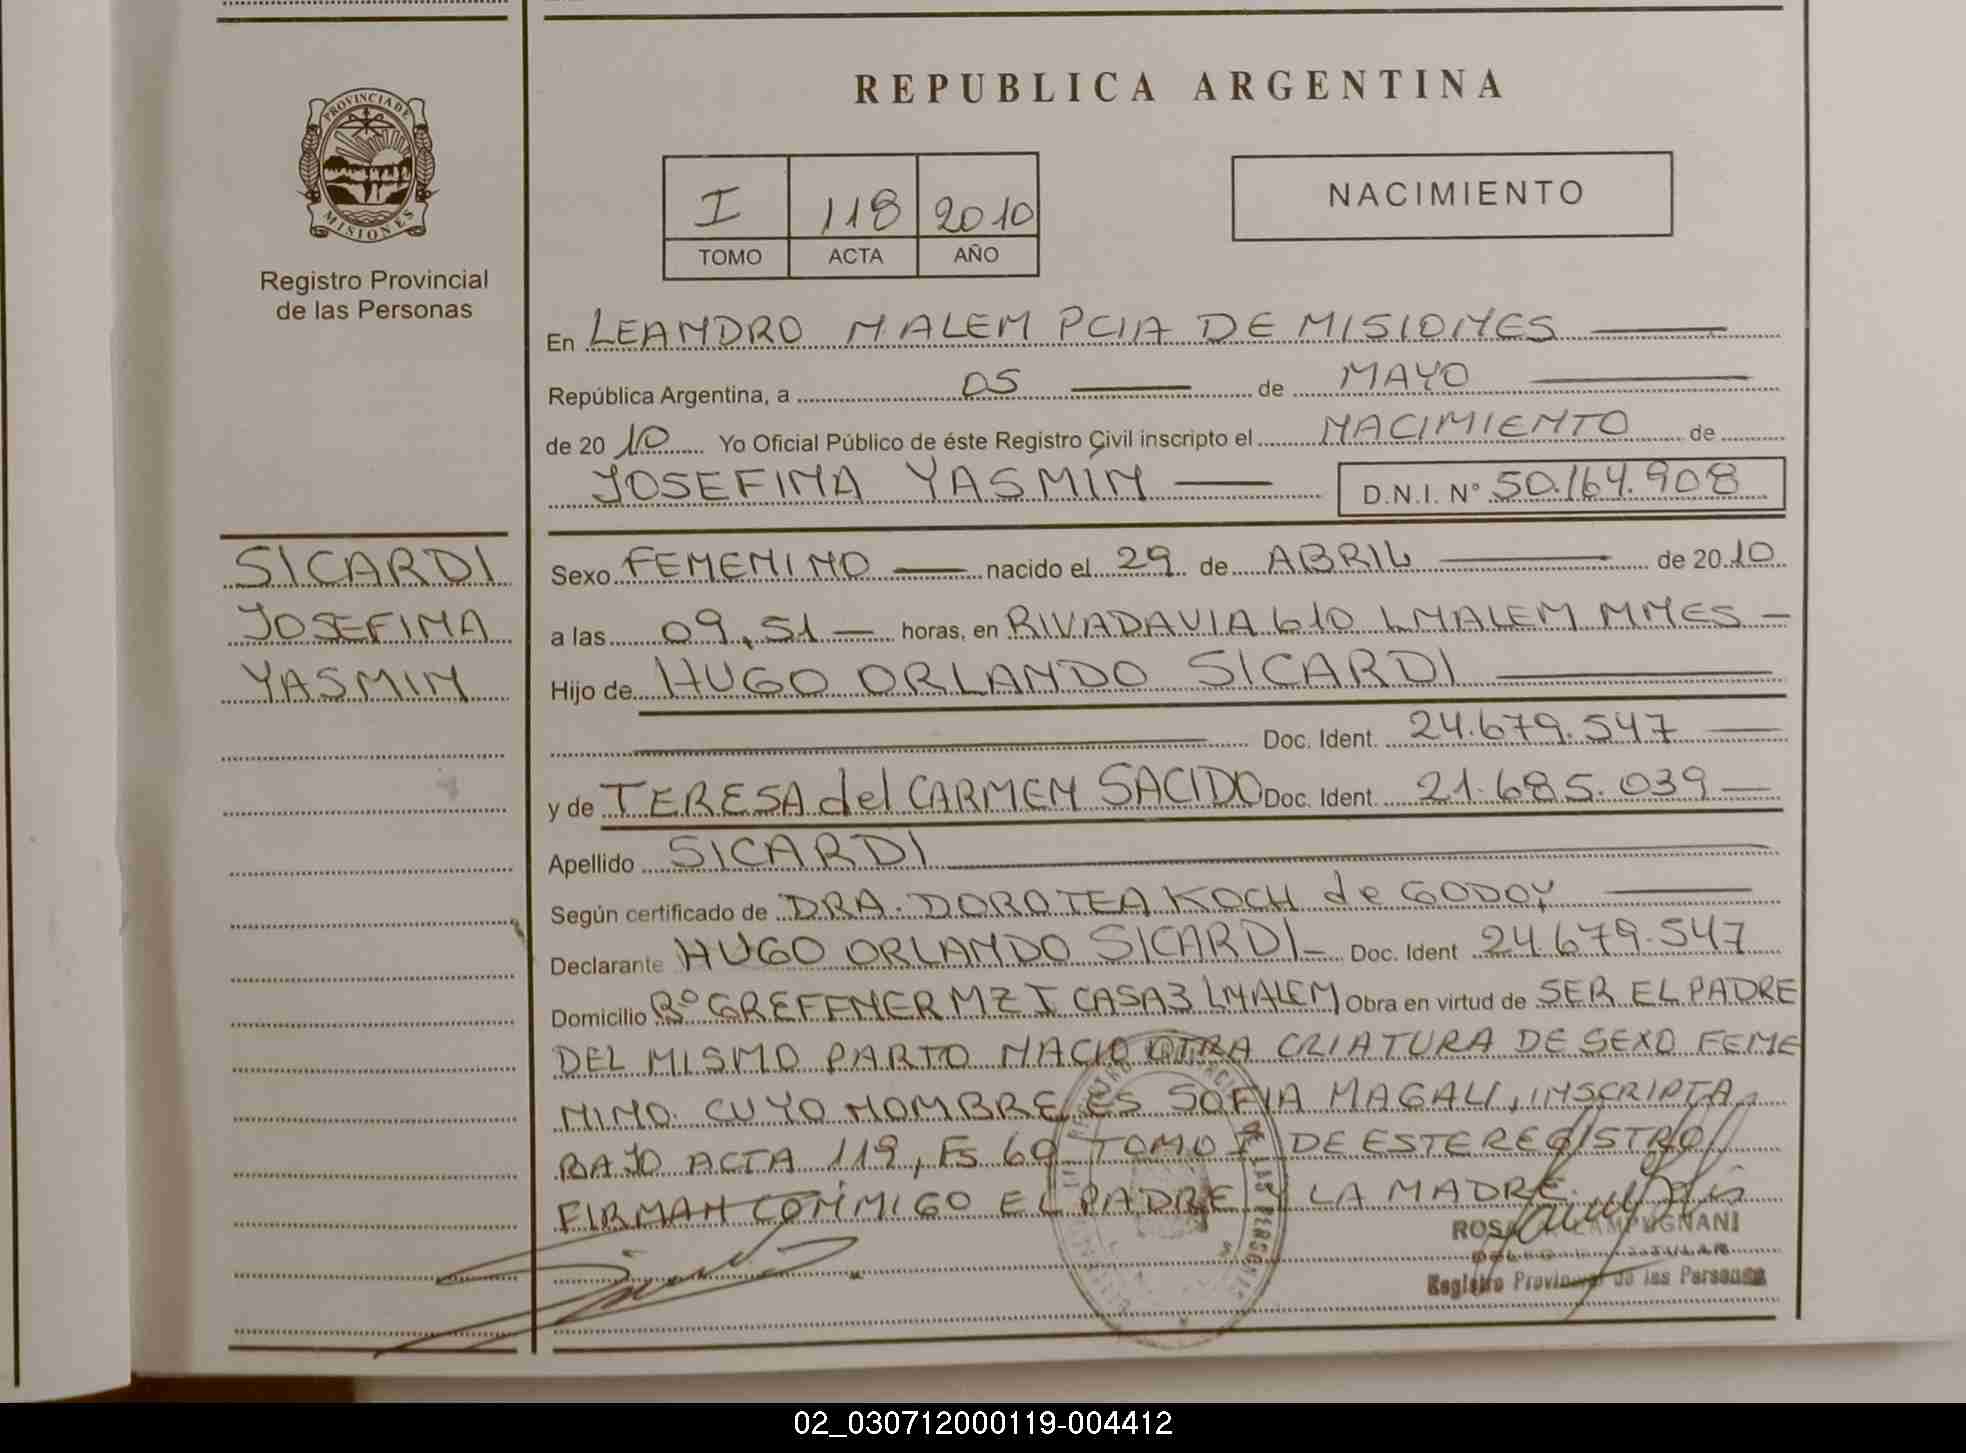 REPUBLICA ARGENTINA
PROVINCIA DE MISIONES
Registro Provincial
de las Personas
I 118 2010
TOMO ACTA AÑO
NACIMIENTO
En LEANDRO N ALEM PCIA DE MISIONES
República Argentina, a 05 de MAYO
de 2010 Yo Oficial Público de éste Registro Civil inscripto el NACIMIENTO de
JOSEFINA YASMIN D.N.I. N° 50.164.908
SICARDI
JOSEFINA
YASMIN
Sexo FEMENINO nacido el 29 de ABRIL de 2010
a las 09,51 horas, en RIVADAVIA 610 LNALEM MNES
Hijo de HUGO ORLANDO SICARDI
Doc. Ident. 24.679.547
y de TERESA del CARMEN SACIDO Doc. Ident. 21.685.039
Apellido SICARDI
Según certificado de DRA. DOROTEA KOCH de GODOY
Declarante HUGO ORLANDO SICARDI Doc. Ident 24.679.547
Domicilio B° GREFFNER MZ I CASA 3 LNALEM Obra en virtud de SER EL PADRE
DEL MISMO PARTO NACIO OTRA CRIATURA DE SEXO FEME
NINO CUYO NOMBRE ES SOFIA MAGALI, INSCRIPTA
BAJO ACTA 119, Fs 60 TOMO I DE ESTE REGISTRO
FIRMAN CONMIGO EL PADRE Y LA MADRE.
LAMPUGNANI
Registro Provincial de las Personas
02_030712000119-004412